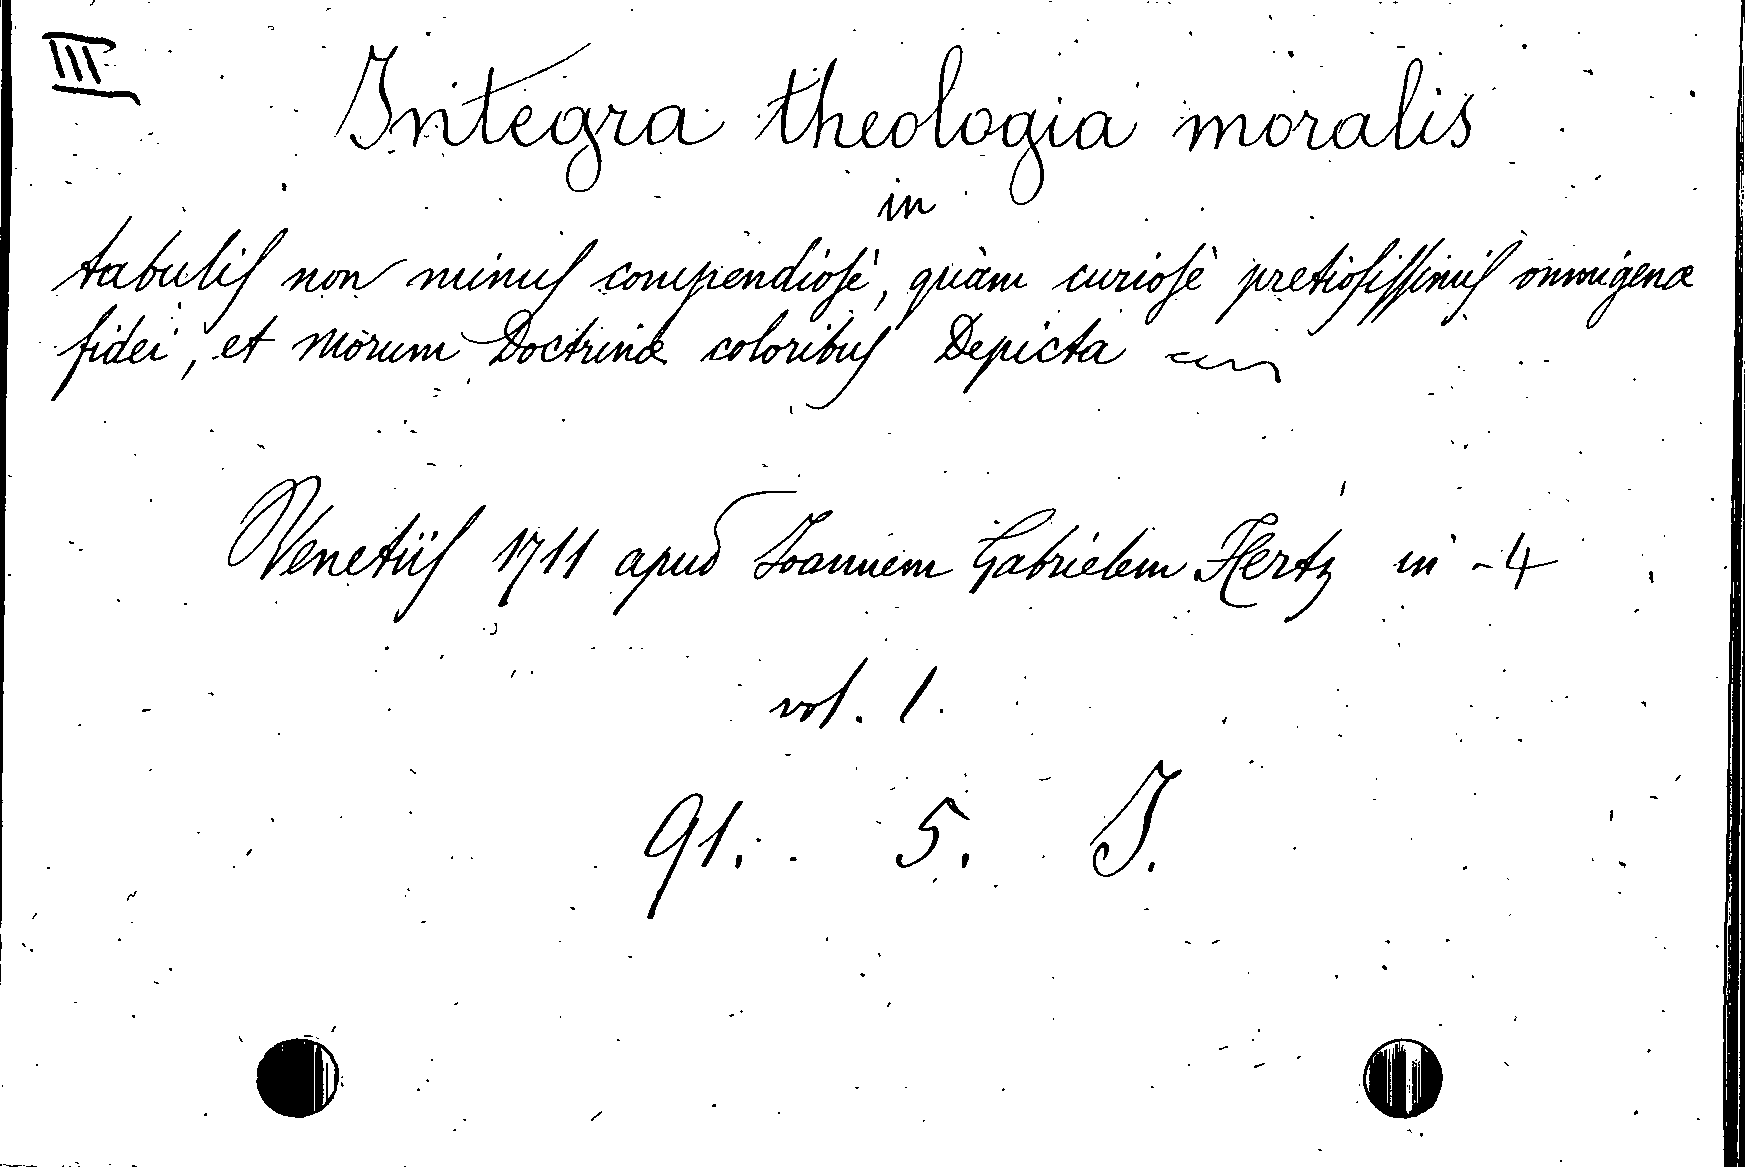 III
Integra theologia moralis
in
tabulis non minus compendiosè, quàm curiosè pretiosissimis omnigenæ
fidei, et morum Doctrinæ coloribus Depicta
Venetiis 1711 apud Joannem Gabrielem Hertz in-4
vol. 1.
91. 5. J.